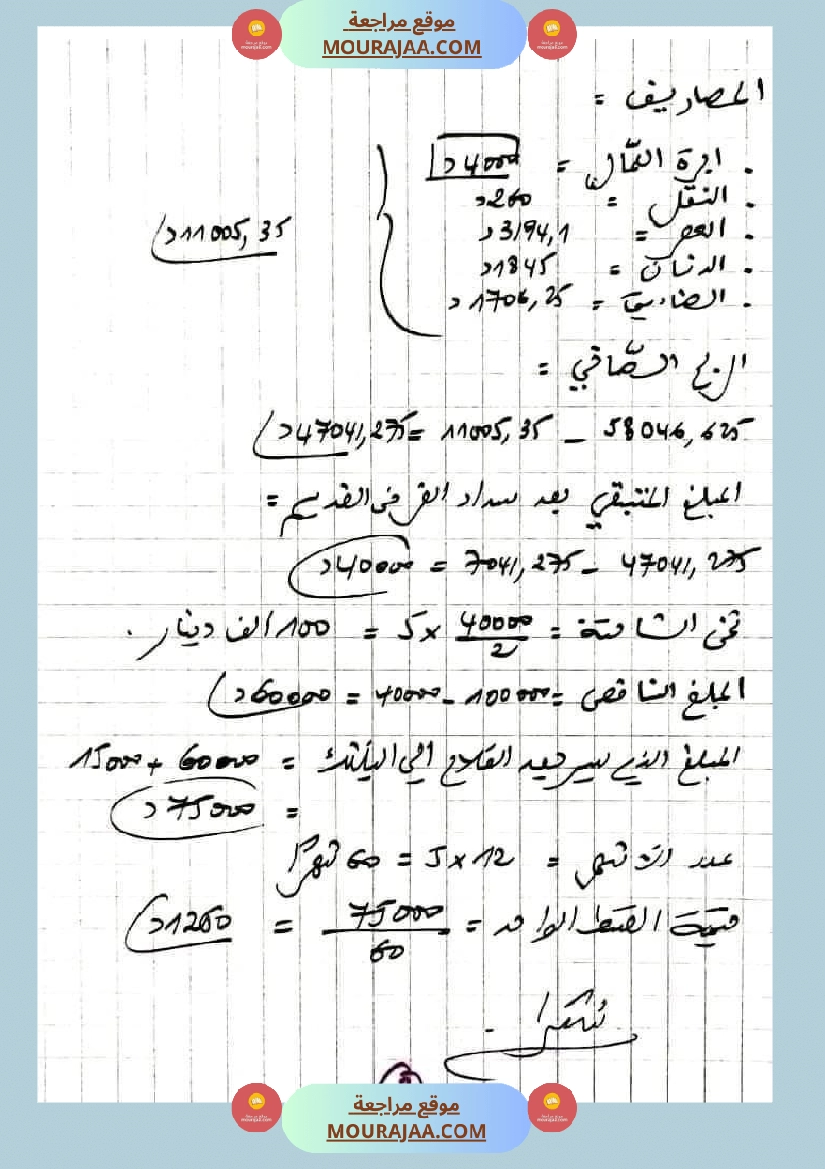 موقع مراجعة
MOURAJAA.COM
المصاريف =
. اجرة العمّال = 4000د
. النقل = 260د
. العصر = 3194,1د
. الدنان = 1845د
. = 1706,25د
11005,35د
الربح الصّافي =
58046,625 – 11005,35 = 47041,275د
المبلغ المتبقي بعد سداد القرض القديم =
47041,275 – 7041,275 = 40000د
ثمن الشاحنة = 40000/2 × 5 = 100 الف دينار.
المبلغ الناقص = 100000 – 40000 = 60000د
المبلغ الذي سيرجعه الفلاح الى البنك = 60000 + 15000
= 75000د
عدد الاشهر = 12 × 5 = 60 شهرًا
قيمة القسط الواحد = 75000/60 = 1260د
شكرا .
موقع مراجعة
MOURAJAA.COM